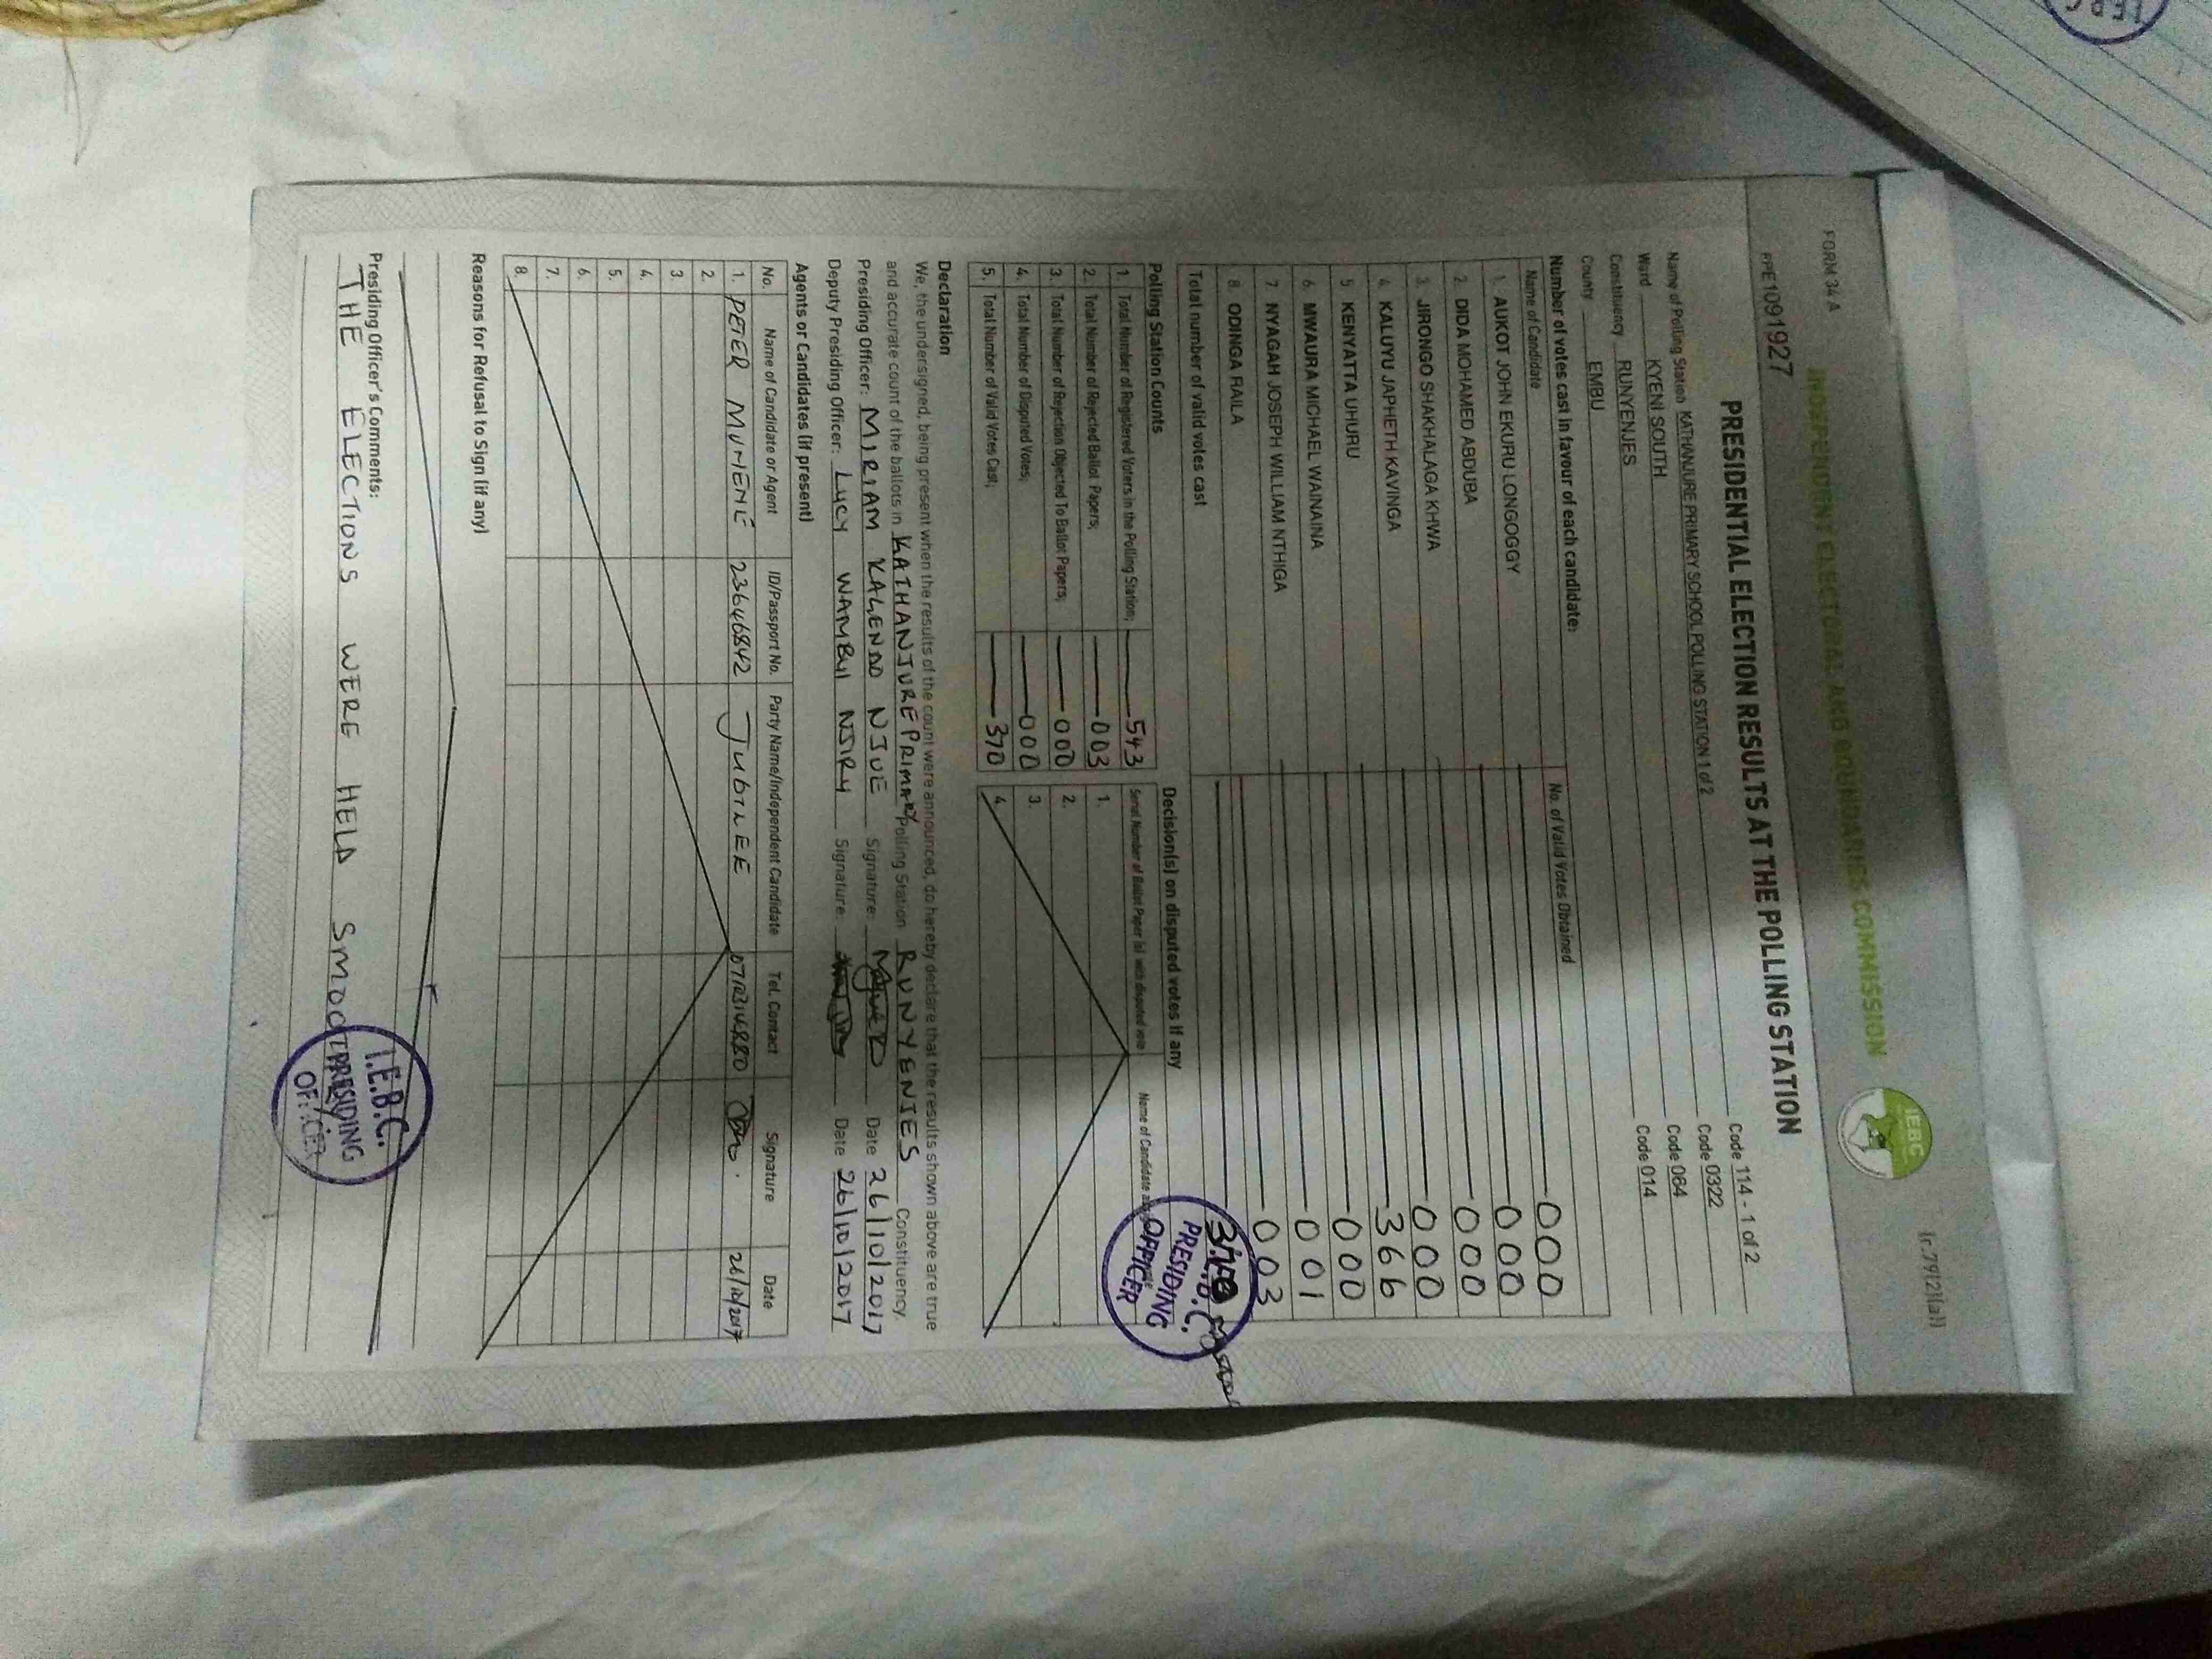 FORM 34 A
(r.79(2)(a))
INDEPENDENT ELECTORAL AND BOUNDARIES COMMISSION
IEBC
PPE1091927
PRESIDENTIAL ELECTION RESULTS AT THE POLLING STATION
Name of Polling Station KATHANJURE PRIMARY SCHOOL POLLING STATION 1 of 2 Code 114 - 1 of 2
Ward KYENI SOUTH Code 0322
Constituency RUNYENJES Code 064
County EMBU Code 014
Number of votes cast in favour of each candidate:
Name of Candidate No. of Valid Votes Obtained
1. AUKOT JOHN EKURU LONGOGGY 000
2. DIDA MOHAMED ABDUBA 000
3. JIRONGO SHAKHALAGA KHWA 000
4. KALUYU JAPHETH KAVINGA 000
5 KENYATTA UHURU 366
6. MWAURA MICHAEL WAINAINA 000
7 NYAGAH JOSEPH WILLIAM NTHIGA 001
8. ODINGA RAILA 003
Total number of valid votes cast 370
I.E.B.C. PRESIDING OFFICER
Polling Station Counts
1. Total Number of Registered Voters in the Polling Station; 543
2. Total Number of Rejected Ballot Papers; 003
3. Total Number of Rejection Objected To Ballot Papers; 000
4. Total Number of Disputed Votes; 000
5. Total Number of Valid Votes Cast; 370
Decision(s) on disputed votes if any
Serial Number of Ballot Paper (s) with disputed vote Name of Candidate
1.
2.
3.
4.
Declaration
We, the undersigned, being present when the results of the count were announced, do hereby declare that the results shown above are true
and accurate count of the ballots in KATHANJURE PRIMARY Polling Station RUNYENJES Constituency.
Presiding Officer: MIRIAM KAGENDO NJUE Signature: Date 26/10/2017
Deputy Presiding Officer: LUCY WAMBUI NJIRU Signature: Date 26/10/2017
Agents or Candidates (if present)
No. Name of Candidate or Agent ID/Passport No. Party Name/Independent Candidate Tel. Contact Signature Date
1. PETER MUNENE 23646842 JUBILEE 26/10/2017
2.
3.
4.
5.
6.
7.
8.
Reasons for Refusal to Sign (if any)
Presiding Officer's Comments:
THE ELECTIONS WERE HELD
I.E.B.C.
PRESIDING
OFFICER